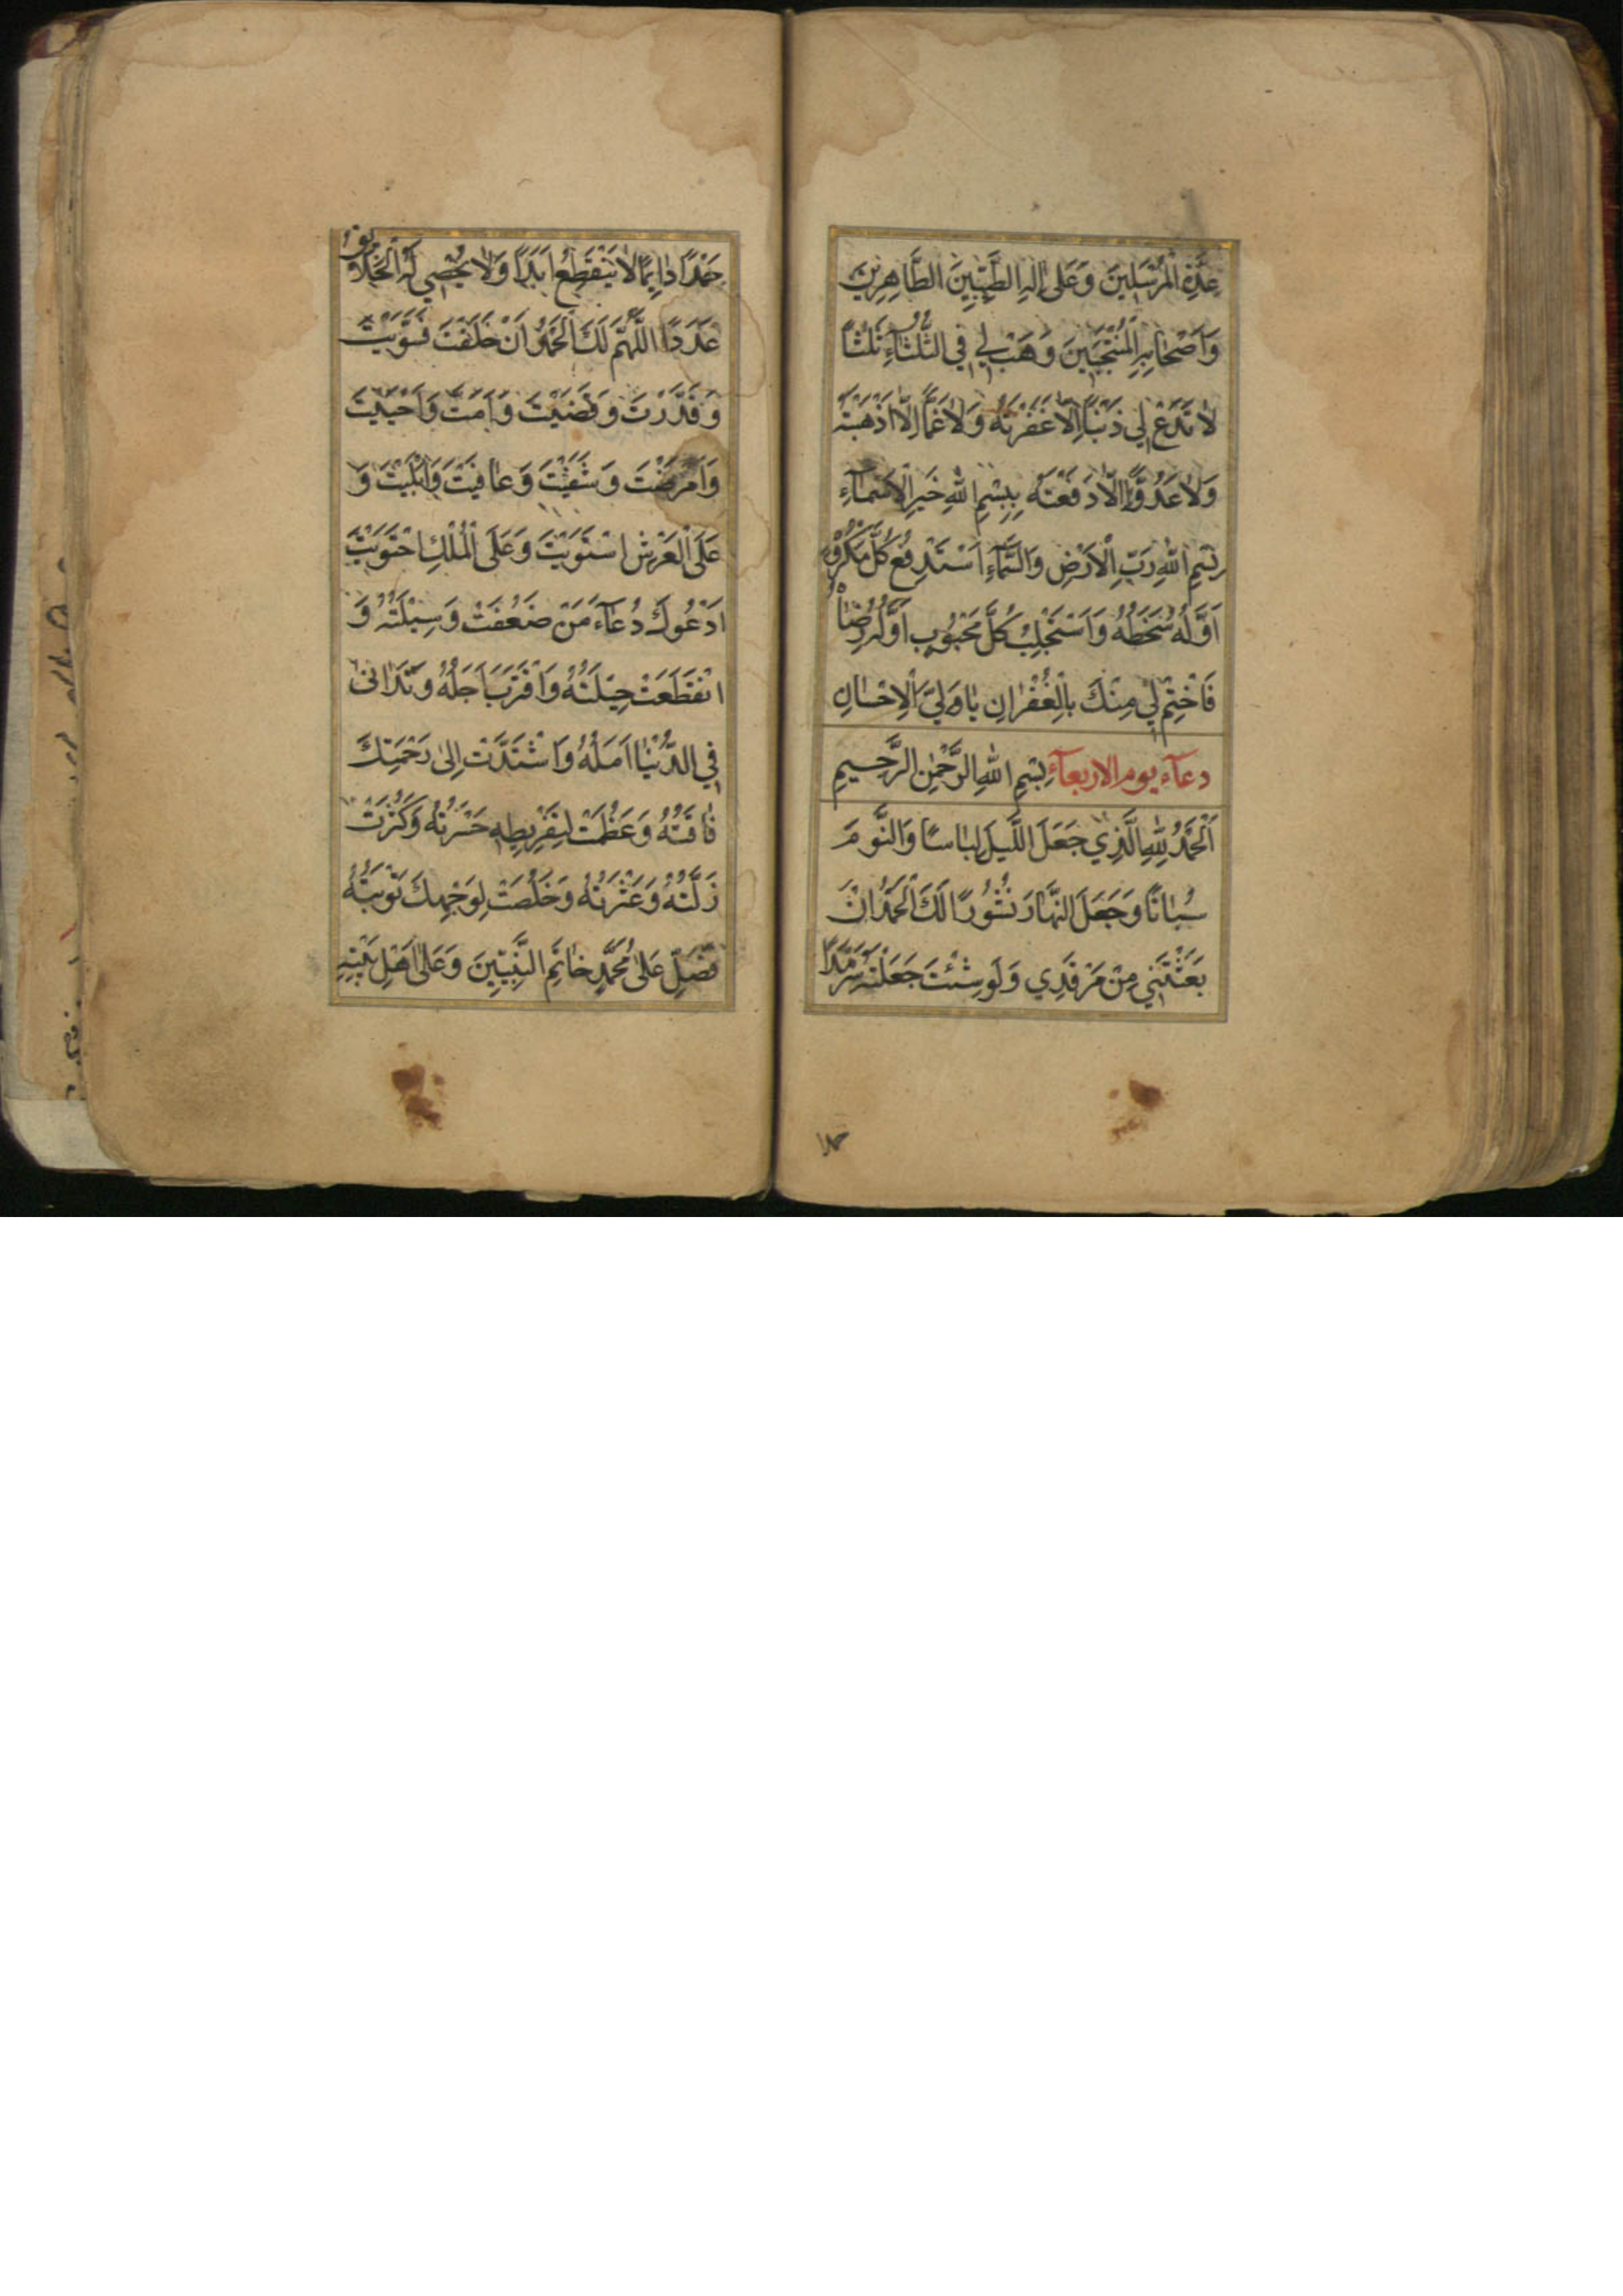 عِدَّةِ الْمُرْسَلِينَ وَعَلىٰ اٰلِهِ الطَّيِّبِينَ الطَّاهِرِينَ
وَاَصْحَابِهِ الْمُنْتَجَبِينَ وَهَبْ لِي فِي الثُّلَثَاءِ ثَلٰثًا
لَا تَدَعْ لِي ذَنْبًا اِلَّا غَفَرْتَهُ وَلَا غَمًّا اِلَّا اَذْهَبْتَهُ
وَلَا عَدُوًّا اِلَّا دَفَعْتَهُ بِبِسْمِ اللهِ خَيْرِ الْاَسْمَآءِ
بِسْمِ اللهِ رَبِّ الْاَرْضِ وَالسَّمَآءِ اَسْتَدْفِعُ كُلَّ مَكْرُوهٍ
اَوَّلُهُ سَخَطُهُ وَاَسْتَجْلِبُ كُلَّ مَحْبُوبٍ اَوَّلُهُ رِضَاهُ
فَاخْتِمْ لِي مِنْكَ بِالْغُفْرَانِ يَا وَلِيَّ الْاِحْسَانِ
دعآء يوم الاربعآء بِسْمِ اللهِ الرَّحْمٰنِ الرَّحِيمِ
اَلْحَمْدُ لِلّٰهِ الَّذِي جَعَلَ اللَّيْلَ لِبَاسًا وَالنَّوْمَ
سُبَاتًا وَجَعَلَ النَّهَارَ نُشُورًا لَكَ الْحَمْدُ اَنْ
بَعَثْتَنِي مِنْ مَرْقَدِي وَلَوْ شِئْتَ جَعَلْتَهُ سَرْمَدًا
حمدا
حَمْدًا دَائِمًا لَا يَنْقَطِعُ اَبَدًا وَلَا يُحْصِي لَهُ الْخَلَائِقُ
عَدَدًا اَللّٰهُمَّ لَكَ الْحَمْدُ اَنْ خَلَقْتَ فَسَوَّيْتَ
وَقَدَّرْتَ وَقَضَيْتَ وَاَمَتَّ وَاَحْيَيْتَ
وَاَمْرَضْتَ وَشَفَيْتَ وَعَافَيْتَ وَاَبْلَيْتَ وَ
عَلَى الْعَرْشِ اسْتَوَيْتَ وَعَلَى الْمُلْكِ احْتَوَيْتَ
اَدْعُوكَ دُعَآءَ مَنْ ضَعُفَتْ وَسِيْلَتُهُ وَ
انْقَطَعَتْ حِيْلَتُهُ وَاقْتَرَبَ اَجَلُهُ وَتَدَانىٰ
فِي الدُّنْيَا اَمَلُهُ وَاشْتَدَّتْ اِلىٰ رَحْمَتِكَ
فَاقَتُهُ وَعَظُمَتْ لِتَفْرِيطِهِ حَسْرَتُهُ وَكَثُرَتْ
زَلَّتُهُ وَعَثْرَتُهُ وَخَلُصَتْ لِوَجْهِكَ تَوْبَتُهُ
فَصَلِّ عَلىٰ مُحَمَّدٍ خَاتَمِ النَّبِيِّينَ وَعَلىٰ اَهْلِ بَيْتِهِ